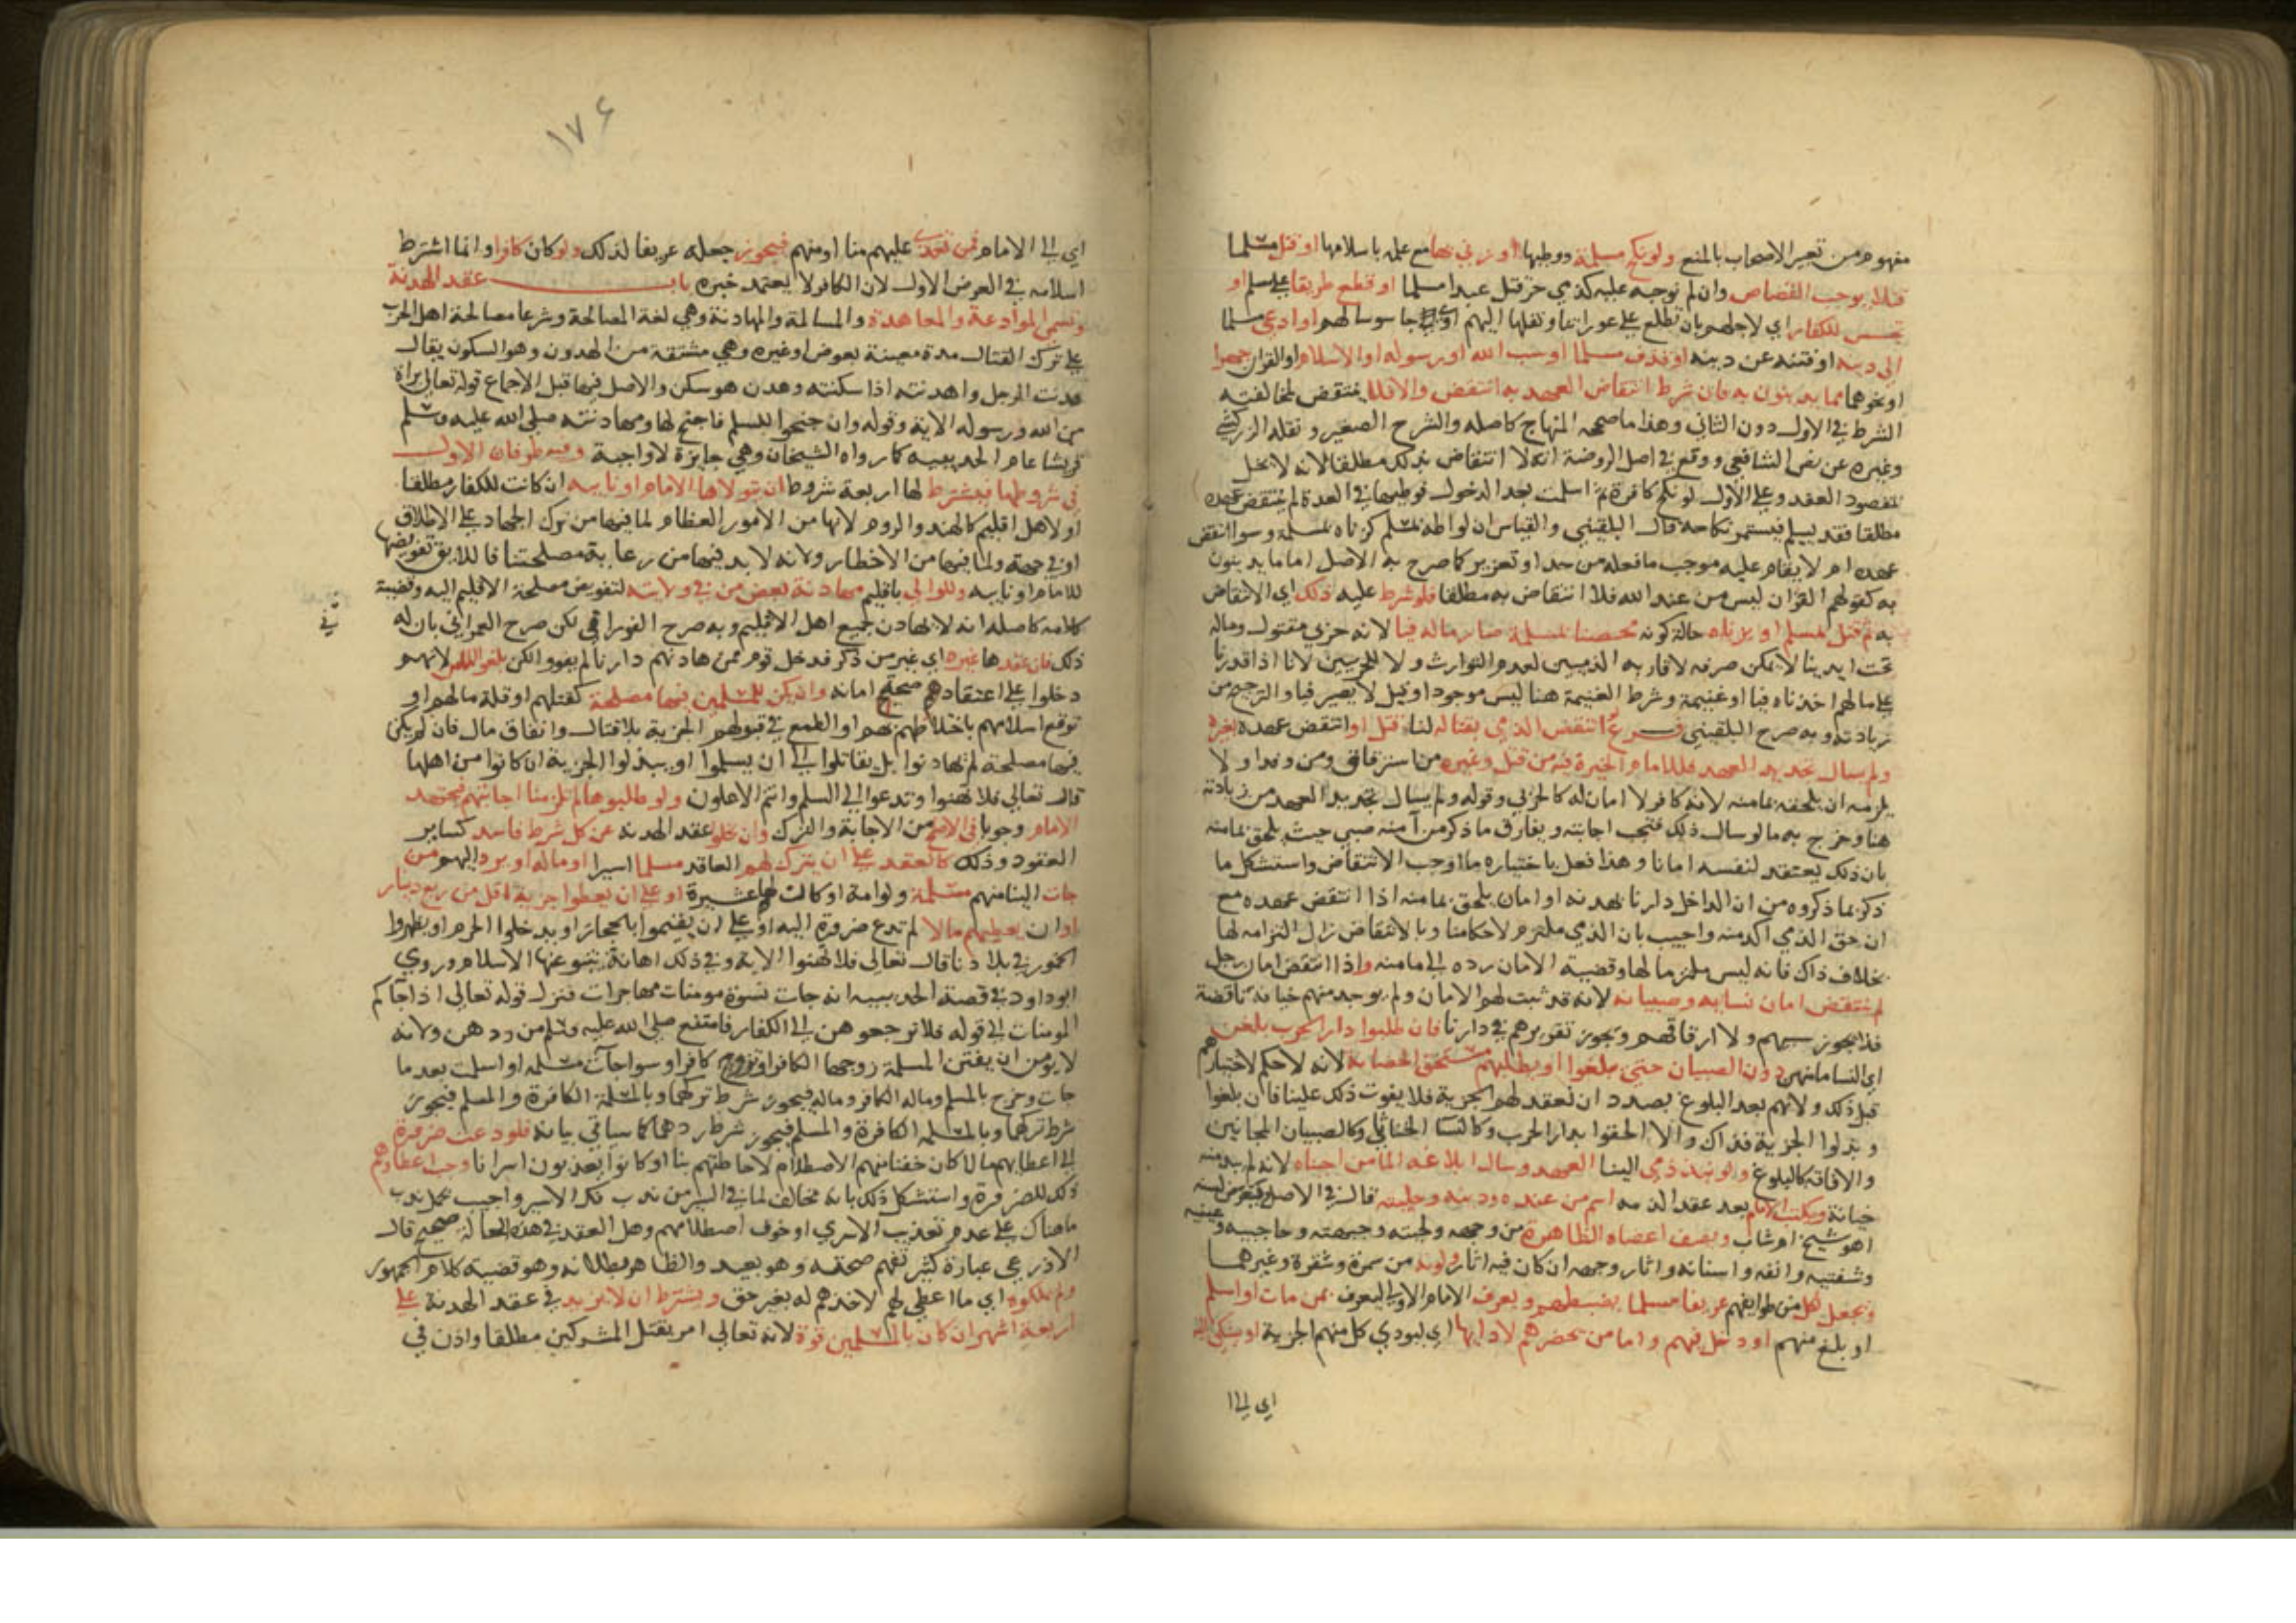 مفهوم من تعبير الاصحاب بالمنع ولو نكح مسلمة ووطيها او زني بها مع علمه باسلامها او قتل مسلما
قتلا يوجب القصاص وان لم نوجبه عليه كذمي حر قتل عبدا مسلما او قطع طريقا علي مسلم او
تجسس للكفار اي لاجلهم بان تطلع علي عوراتنا ونقلها اليهم او جاسوسا لهم او ادعي مسلما
الي دينه او فتنه عن دينه او قذف مسلما او سب الله او رسوله او الاسلام او القران جهرا
او نحوهما مما لا يدينون به فان شرط انتقاض العهد به انتقض والا فلا ينتقض لمخالفته
الشرط في الاول دون الثاني وهذا ما صححه المنهاج كاصله والشرح الصغير ونقله الزركشي
وغيره عن نص الشافعي ووقع في اصل الروضة انه لا انتقاض بذلك مطلقا لانه لا يخل
بمقصود العقد وعلي الاول لو نكح كافرة ثم اسلمت بعد الدخول فوطيها في العدة لم ينتقض عهده
مطلقا فقد يسلم فيستمر نكاحه قال البلقيني والقياس ان لواطه بمسلم كزناه بمسلمة وسوا انتقض
عهده ام لا يقام عليه موجب ما فعله من حد او تعزير كما صرح به الاصل اما ما يدينون
به كقولهم القران ليس من عند الله فلا انتقاض به مطلقا فلو شرط عليه ذلك اي الانتقاض
به ثم قتل بمسلم او بزناه حالة كونه محصنا بمسلمة صار ماله فيا لانه حربي مقتول وماله
تحت ايدينا لا يمكن صرفه لاقاربه الذميين لعدم التوارث ولا للحربيين لانا اذا قدرنا
علي مالهم اخذناه فيا او غنيمة وشرط الغنيمة هنا ليس موجودا وقيل لا يصير فيا والترجيح من
زيادته وبه صرح البلقيني فرع انتقض الذمي بقتاله لنا قتل او انتقض عهده بغيره
ولم يسال تجديد العهد فللامام الخيرة فيه من قتل وغيره من استرقاق ومن وفدا ولا
يلزمه ان يلحقه بمامنه لانه كافر لا امان له كالحربي وقوله ولم يسال تجديد العهد من زيادته
هنا وخرج به ما لو سال ذلك فتجب اجابته ويفارق ما ذكر من آمنه صبي حيث يلحق بمامنه
بان ذلك يعتقد لنفسه امانا وهذا فعل باختياره ما اوجب الانتقاض واستشكل ما
ذكر بما ذكروه من ان الداخل دارنا بهدنة او امان يلحق بمامنه اذا انتقض عهده مع
ان حق الذمي اكد منه واجيب بان الذمي ملتزم لاحكامنا وبالانتقاض زال التزامه لها
بخلاف ذاك فانه ليس ملتزما لها وقضية الامان رده الي مامنه واذا انتقض امان رجل
لم ينتقض امان نسايه وصبيانه لانه قد ثبت لهم الامان ولم يوجد منهم خيانة ناقضة
فلا يجوز سبيهم ولا ارقاقهم ويجوز تقريرهم في دارنا فان طلبوا دار الحرب بلغن
اي النسا مامنهن دون الصبيان حتي يبلغوا او يطلبهم مستحق الحضانة لانه لا حكم لاختيارهم
قبل ذلك ولانهم بعد البلوغ بصدد ان نعقد لهم الجزية فلا يفوت ذلك علينا فان بلغوا
وبذلوا الجزية فذاك والا الحقوا بدار الحرب وكالنسا الخناثي وكالصبيان المجانين
والافاقة كالبلوغ ولو نبذ ذمي الينا العهد وسال ابلاغه المامن اجبناه لانه لم يبد منه
خيانة ويكتب الامام بعد عقد الذمه اسم من عنده ودينه وحليته قال في الاصل فيتعرض لسنه
اهو شيخ ام شاب ويصف اعضاه الظاهرة من وجهه ولحيته وجبهته وحاجبيه وعينيه
وشفتيه وانفه واسنانه واثار وجهه ان كان فيه اثار ولونه من سمرة وشقرة وغيرهما
ويجعل لكل من طوايفهم عريفا مسلما يضبطهم ويعرف الامام الاولي ليعرف بمن مات او اسلم
او بلغ منهم او دخل فيهم واما من يحضرهم لادايها اي ليودي كل منهم الجزية او يشتكي الي
اي الي ا
١٧٤
اي الي الامام من تعدي عليهم منا او منهم فيجوز جعله عريفا لذلك ولو كان كافرا وانما اشترط
اسلامه في العرض الاول لان الكافر لا يعتمد خبره باب عقد الهدنة
وتسمي الموادعة والمعاهدة والمسالمة والمهادنة وهي لغة المصالحة وشرعا مصالحة اهل الحرب
علي ترك القتال مدة معينة بعوض او غيره وهي مشتقة من الهدون وهو السكون يقال
هدنت الرجل واهدنته اذا سكنته وهدن هو سكن والاصل فيها قبل الاجماع قوله تعالي براة
من الله ورسوله الاية وقوله وان جنحوا للسلم فاجنح لها ومهادنته صلي الله عليه وسلم
قريشا عام الحديبيه كما رواه الشيخان وهي جايزة لا واجبة وفيه طرفان الاول
في شروطها فيشترط لها اربعة شروط ان يتولاها الامام او نايبه ان كانت للكفار مطلقا
او لاهل اقليم كالهند والروم لانها من الامور العظام لما فيها من ترك الجهاد علي الاطلاق
او في جهة ولما فيها من الاخطار ولانه لا بد فيها من رعاية مصلحتنا فاللايق تفويضها
للامام او نايبه وللوالي باقليم مهادنة بعض من في ولايته لتفويض مصلحة الاقليم اليه وقضية
كلامه كاصله انه لا يهادن جميع اهل الاقليم وبه صرح الفوراني لكن صرح العمراني بان له
ذلك فان عقدها غيره اي غير من ذكر فدخل قوم ممن هادنهم دارنا لم يقروا لكن بلغوا المامن لانهم
دخلوا علي اعتقادهم صحة امانه وان يكن للمسلمين فيها مصلحة كقتلهم او قلة مالهم او
توقع اسلامهم باختلاطهم بهم او الطمع في قبولهم الجزية بلا قتال وانفاق مال فان لم يكن
فيها مصلحة لم يهادنوا بل يقاتلوا الي ان يسلموا او يبذلوا الجزية ان كانوا من اهلها
قال تعالي فلا تهنوا وتدعوا الي السلم وانتم الاعلون ولو طلبوها لم تلزمنا اجابتهم فيجتهد
الامام وجوبا في الاصلح من الاجابة والترك وان يخلو عقد الهدنة عن كل شرط فاسد كساير
العقود وذلك كان تعقد علي ان يترك لهم العاقد مسلما اسيرا او ماله او يرد اليهم من
جات الينا منهم مسلمة ولو امة او كانت لها عشيرة او علي ان يعطوا جزية اقل من ربع دينار
او ان يعطيهم مالا لم تدع ضرورة اليه او علي ان يقيموا بالحجاز او يدخلوا الحرم او يظهروا
الخمور في بلادنا قال تعالي فلا تهنوا الاية وفي ذلك اهانة ينبو عنها الاسلام وروي
ابو داود في قصة الحديبيه انه جات نسوة مومنات مهاجرات فنزل قوله تعالي اذا جاكم
المومنات الي قوله فلا ترجعوهن الي الكفار فامتنع صلي الله عليه وسلم من ردهن ولانه
لا يومن ان يفتن المسلمة زوجها الكافر او تزوج كافرا وسوا جات مسلمه او اسلمت بعد ما
جات وخرج بالمسلم وماله الكافر وماله فيجوز شرط تركهما وبالمسلمة الكافرة والمسلم فيجوز
شرط تركهما وبالمسلمه الكافرة والمسلم فيجوز شرط ردهما كما سياتي بيانه فلو دعت ضرورة
الي اعطايهم مالا كان خفنا منهم الاصطلام لاحاطتهم بنا او كانوا يعذبون اسرانا وجب اعطاوهم
ذلك للضرورة واستشكل ذلك بانه مخالف لما في السير من ندب فك الاسير واجيب بحمل ندب
ما هناك علي عدم تعذيب الاسري او خوف اصطلامهم وهل العقد في هذه الحالة صحيح قال
الاذرعي عبارة كثير تفهم صحته وهو بعيد والظاهر بطلانه وهو قضية كلام الجمهور
ولم يملكوه اي ما اعطي لهم لاخذهم له بغير حق ويشترط ان لا يزيد في عقد الهدنة علي
اربعة اشهر ان كان بالمسلمين قوة لانه تعالي امر بقتل المشركين مطلقا واذن في